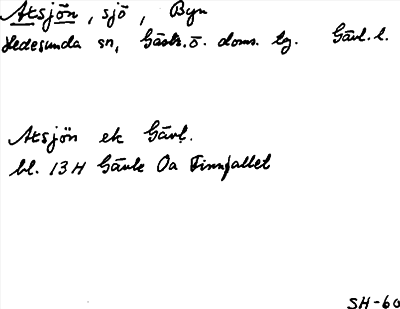 Atsjön, sjö, Byn
Hedesunda sn, Gästr. ö. doms. tg. Gävl. l.
Atsjön ek Gävl.
bl. 13H Gävle Oa Finnfallet
SH-60